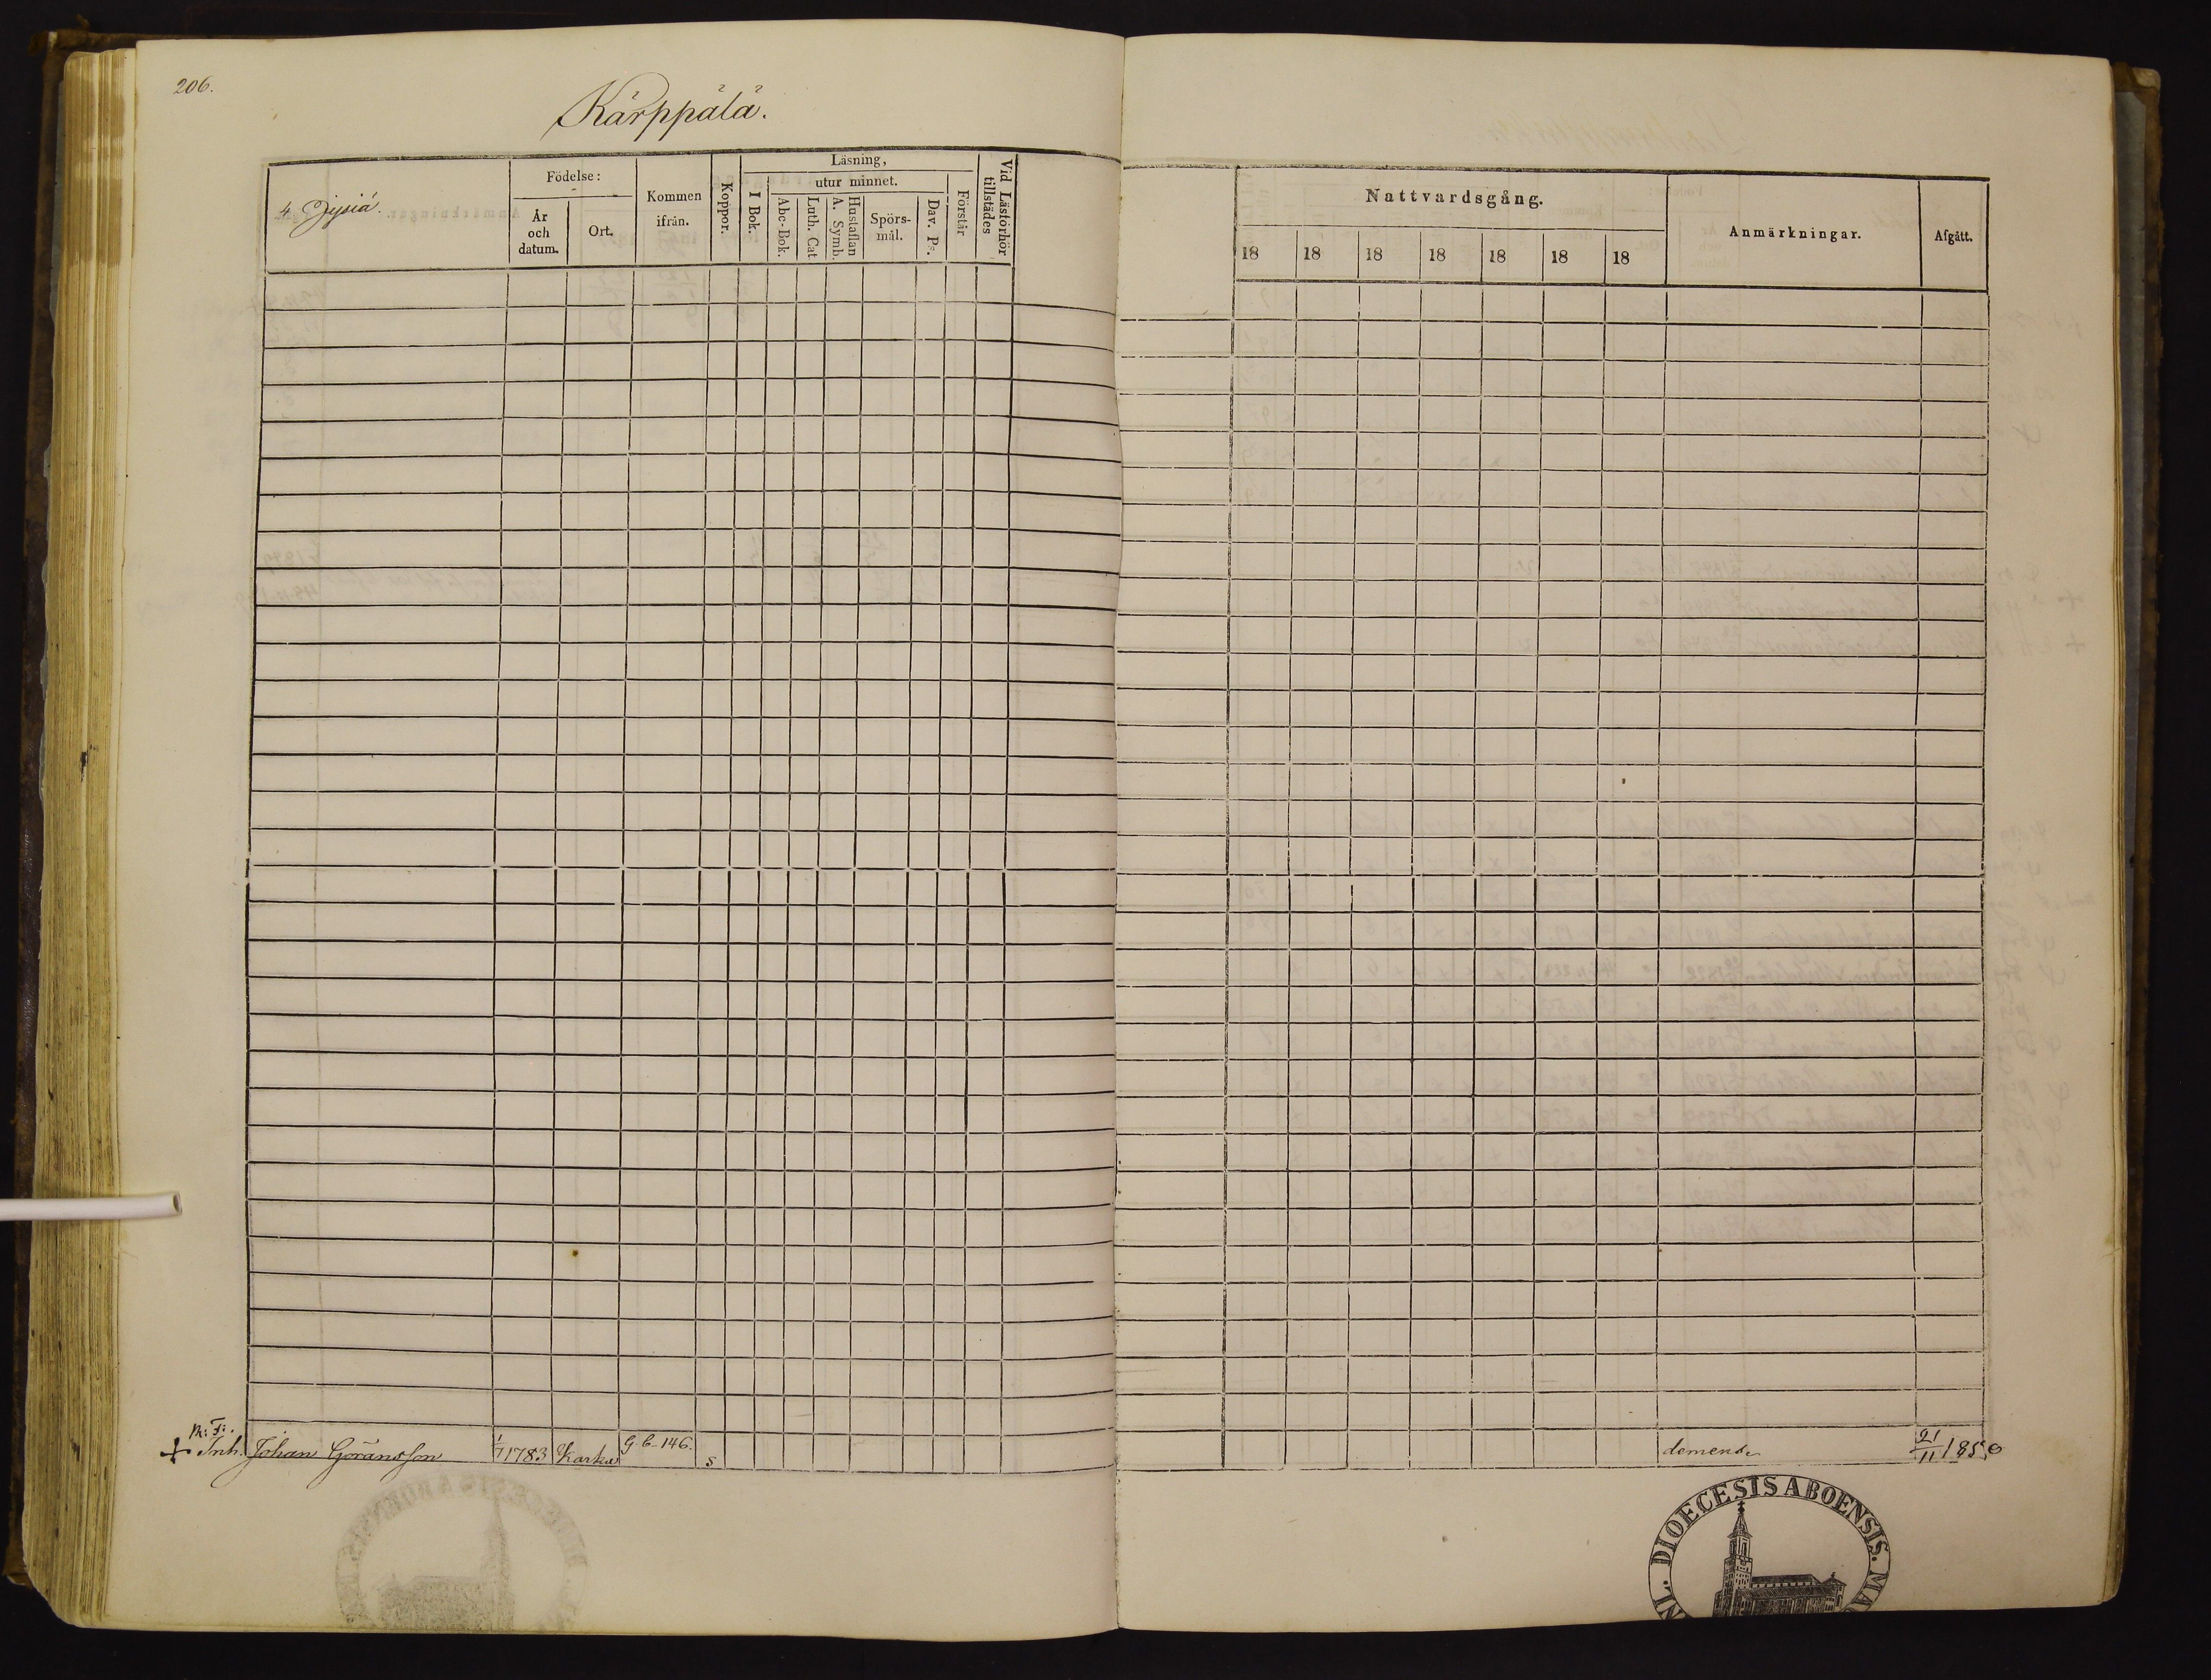 206.
Kärppälä.
4. Jysiä.
Födelse:
År och datum.
Ort.
Kommen ifrån.
Koppor.
Läsning,
I Bok.
utur minnet.
Abc-Bok.
Luth. Cat
Hustaflan
A. Symb.
Spörs-mål.
Dav. Ps.
Förstår
Vid Läsförhör tillstädes
Nattvardsgång.
18 18 18 18 18 18 18
Anmärkningar.
Afgått.
Inh. Johan Göransson 1/7 1783 Karku G. b. 146. s demens 21/11 1850
DIOECESIS ABOENSIS.